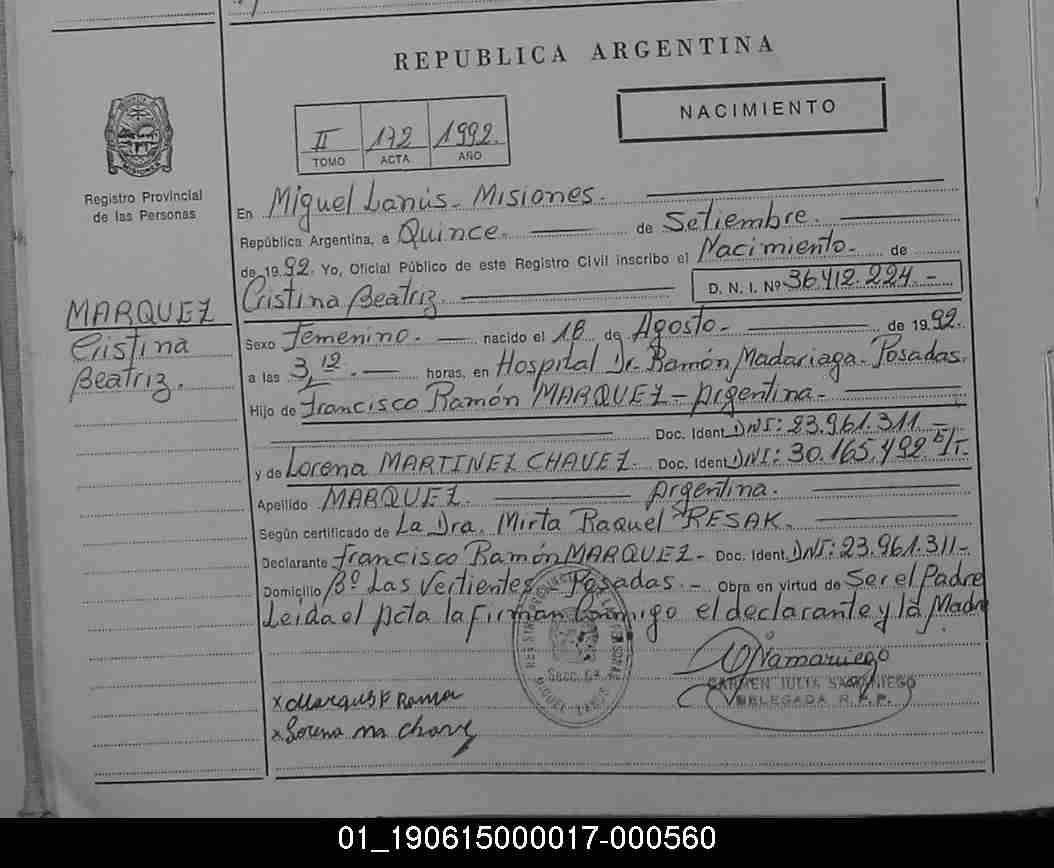 REPUBLICA ARGENTINA
NACIMIENTO
II 172 1992.
TOMO ACTA AÑO
Registro Provincial
de las Personas
En Miguel Lanús - Misiones.
República Argentina, a Quince. de Setiembre.
de 1992. Yo, Oficial Público de este Registro Civil inscribo el Nacimiento. de
Cristina Beatriz. D. N. I. Nº 36.412.224.-
MARQUEZ
Cristina
Beatriz.
Sexo Femenino. nacido el 18 de Agosto - de 1992.
a las 3,12. horas, en Hospital Dr. Ramón Madariaga - Posadas.
Hijo de Francisco Ramón MARQUEZ - Argentina -
Doc. Ident DNI: 23.961.311 -
y de Lorena MARTINEZ CHAVEZ. Doc. Ident DNI: 30.165.492
Apellido MARQUEZ. Argentina.
Según certificado de La Dra. Mirta Raquel RESAK.
Declarante Francisco Ramón MARQUEZ - Doc. Ident. DNI: 23.961.311-
Domicilio Bº Las Vertientes Posadas. - Obra en virtud de Ser el Padre
Leida el Acta la firman Conmigo el declarante y la Madre
CARMEN JULIA SAMANIEGO
DELEGADA R.P.P.
x Marquez F Ramon
x Lorena ma Chavez
01_190615000017-000560